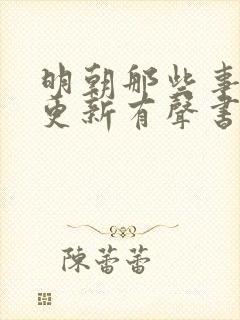 明朝那些事
更新有聲書
陳蕾蕾